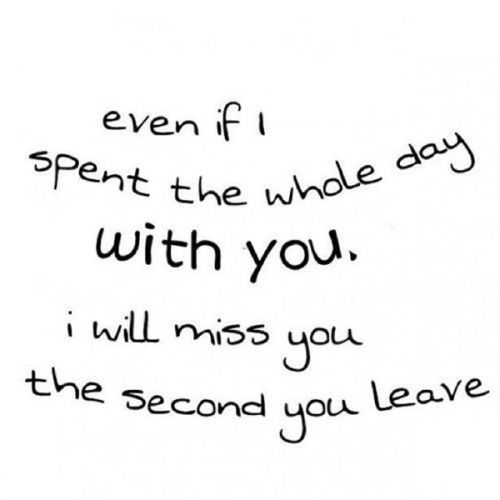 even if I
spent the whole day
with you.
i will miss you
the second you leave